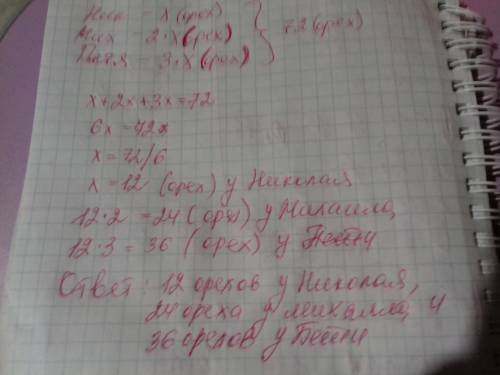 Ник – x (орех)
Мих – 2·x (орех) } 72 (орех)
Петя – 3·x (орех)
x+2x+3x=72
6x=72x
x=72/6
x=12 (орех) у Николая
12·2 =24 (орех) у Михаила
12·3=36 (орех) у
Ответ: 12 орехов у Николая,
24 ореха у михаила, и
36 орехов у